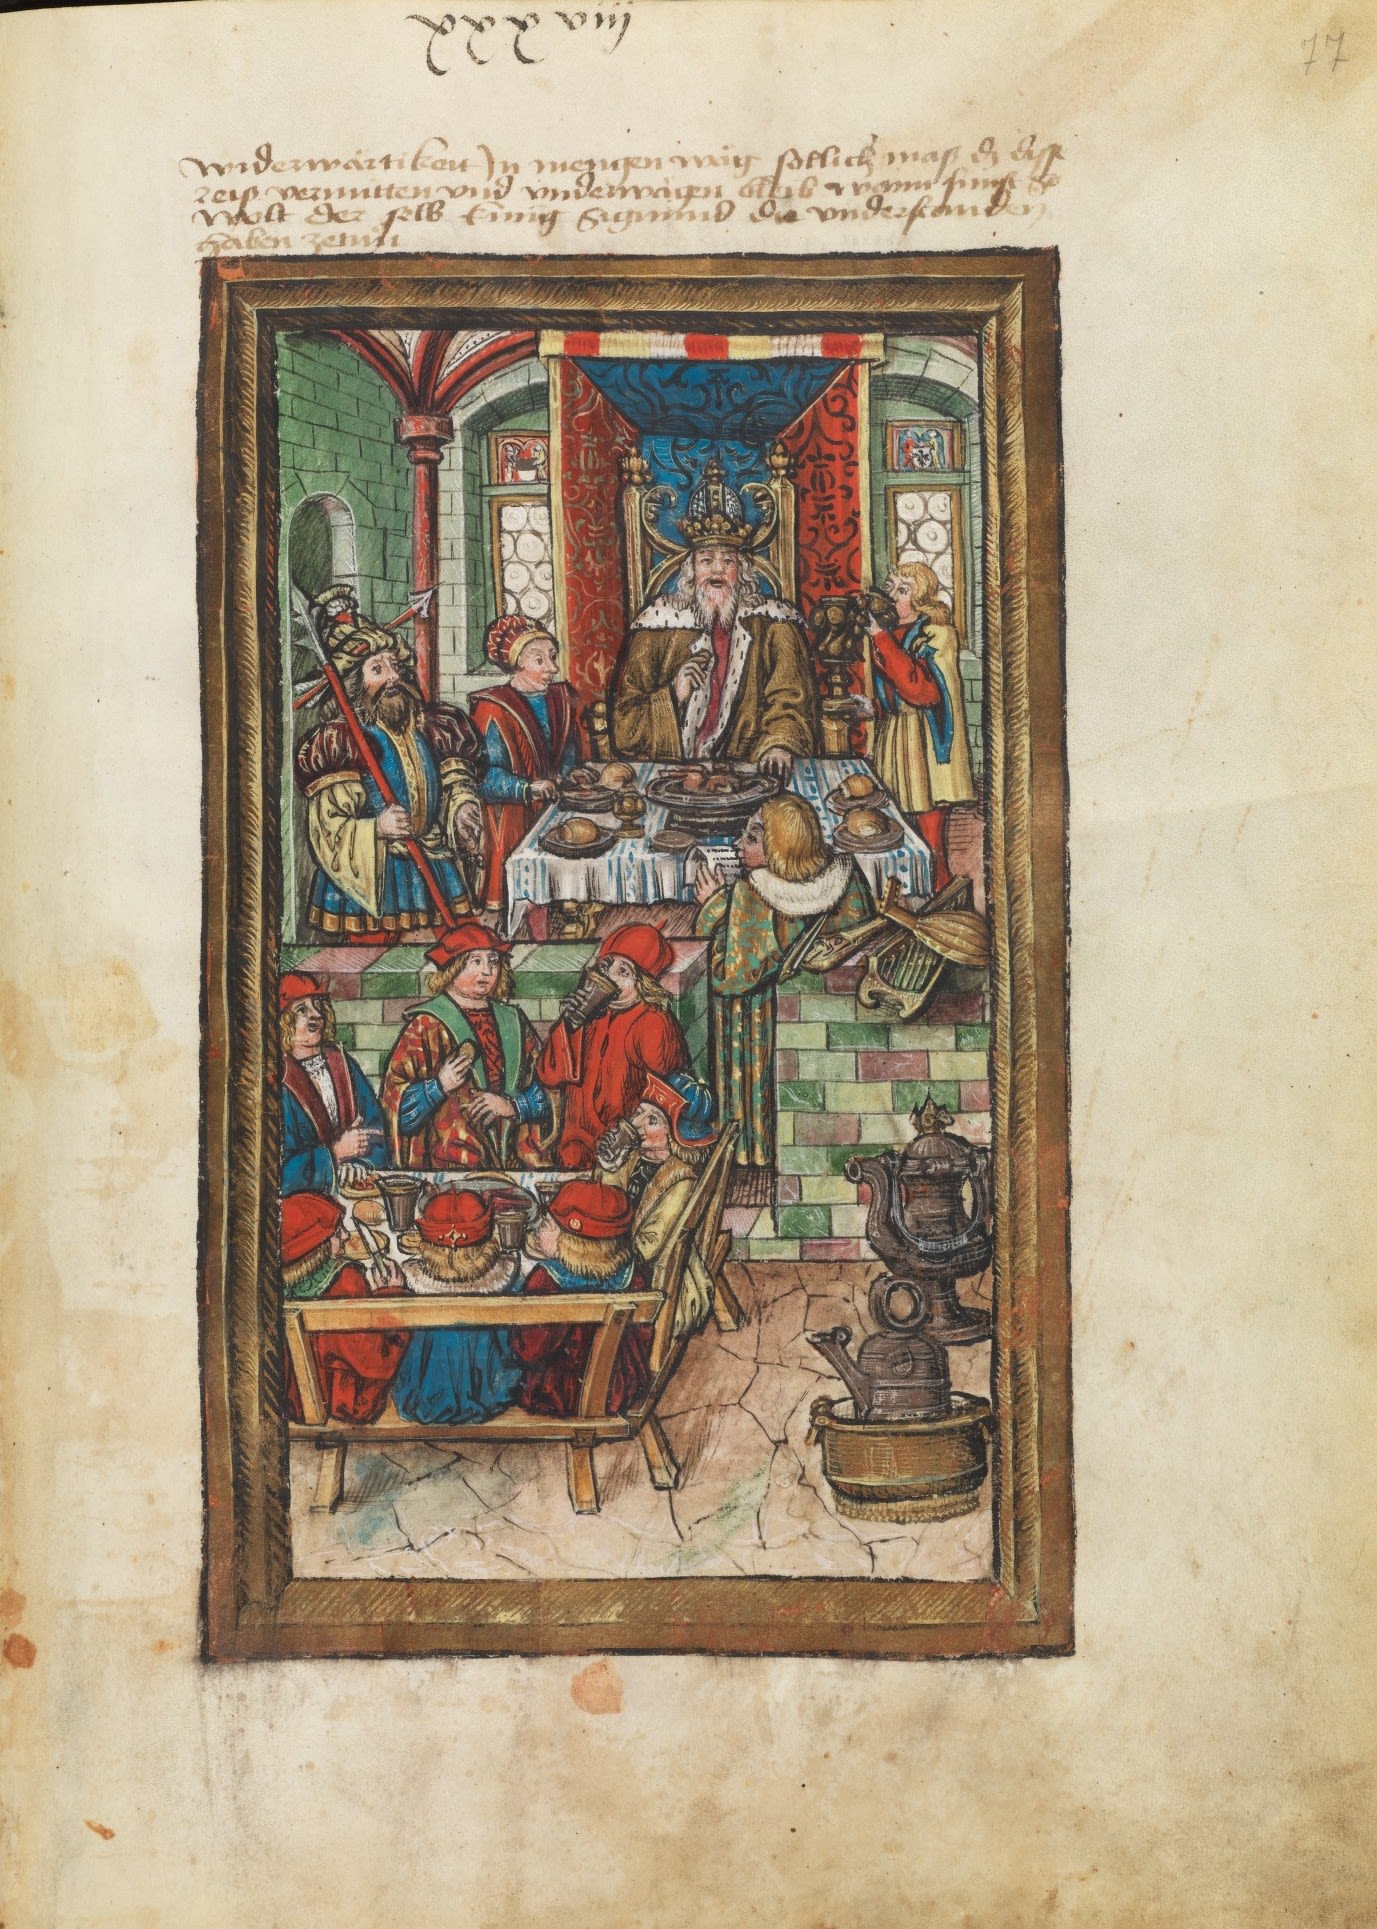 xxxviiij
77
widerwärtikeit In mengen wäg sollich maß dz disse
reiß vermitten und underwägen bleib wann sunst so
wolt der selb künig Sigmund die understanden
haben zetun